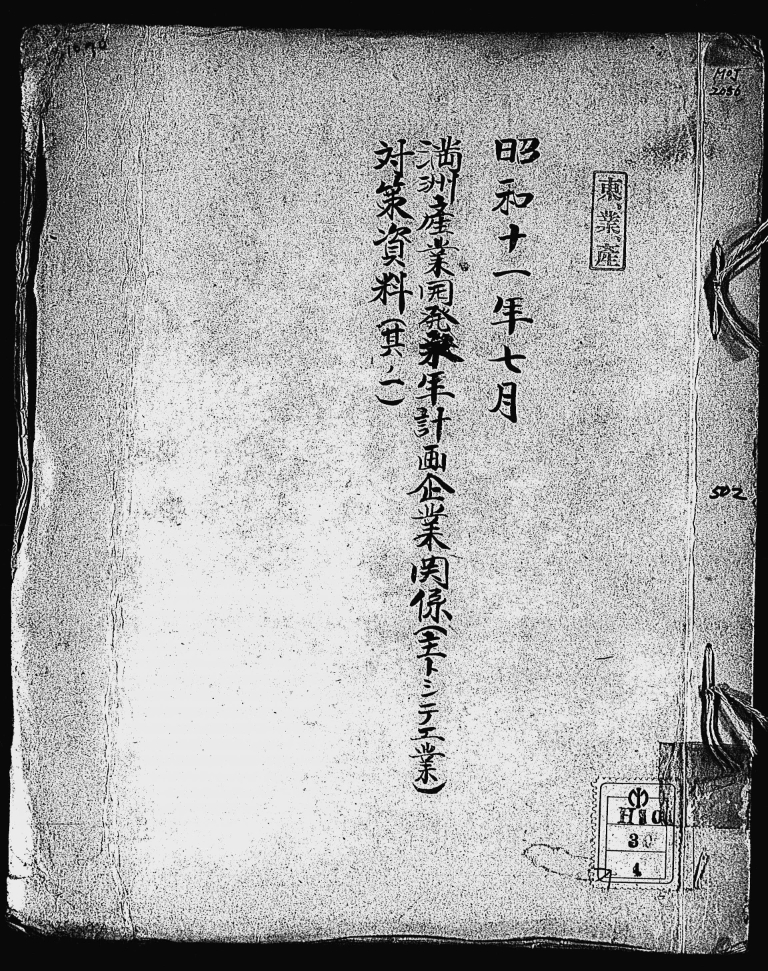 502
東、業、産
昭和十一年七月
満洲産業開発永年計画企業関係(主トシテ工業)
対策資料(其ノ一)
30
4